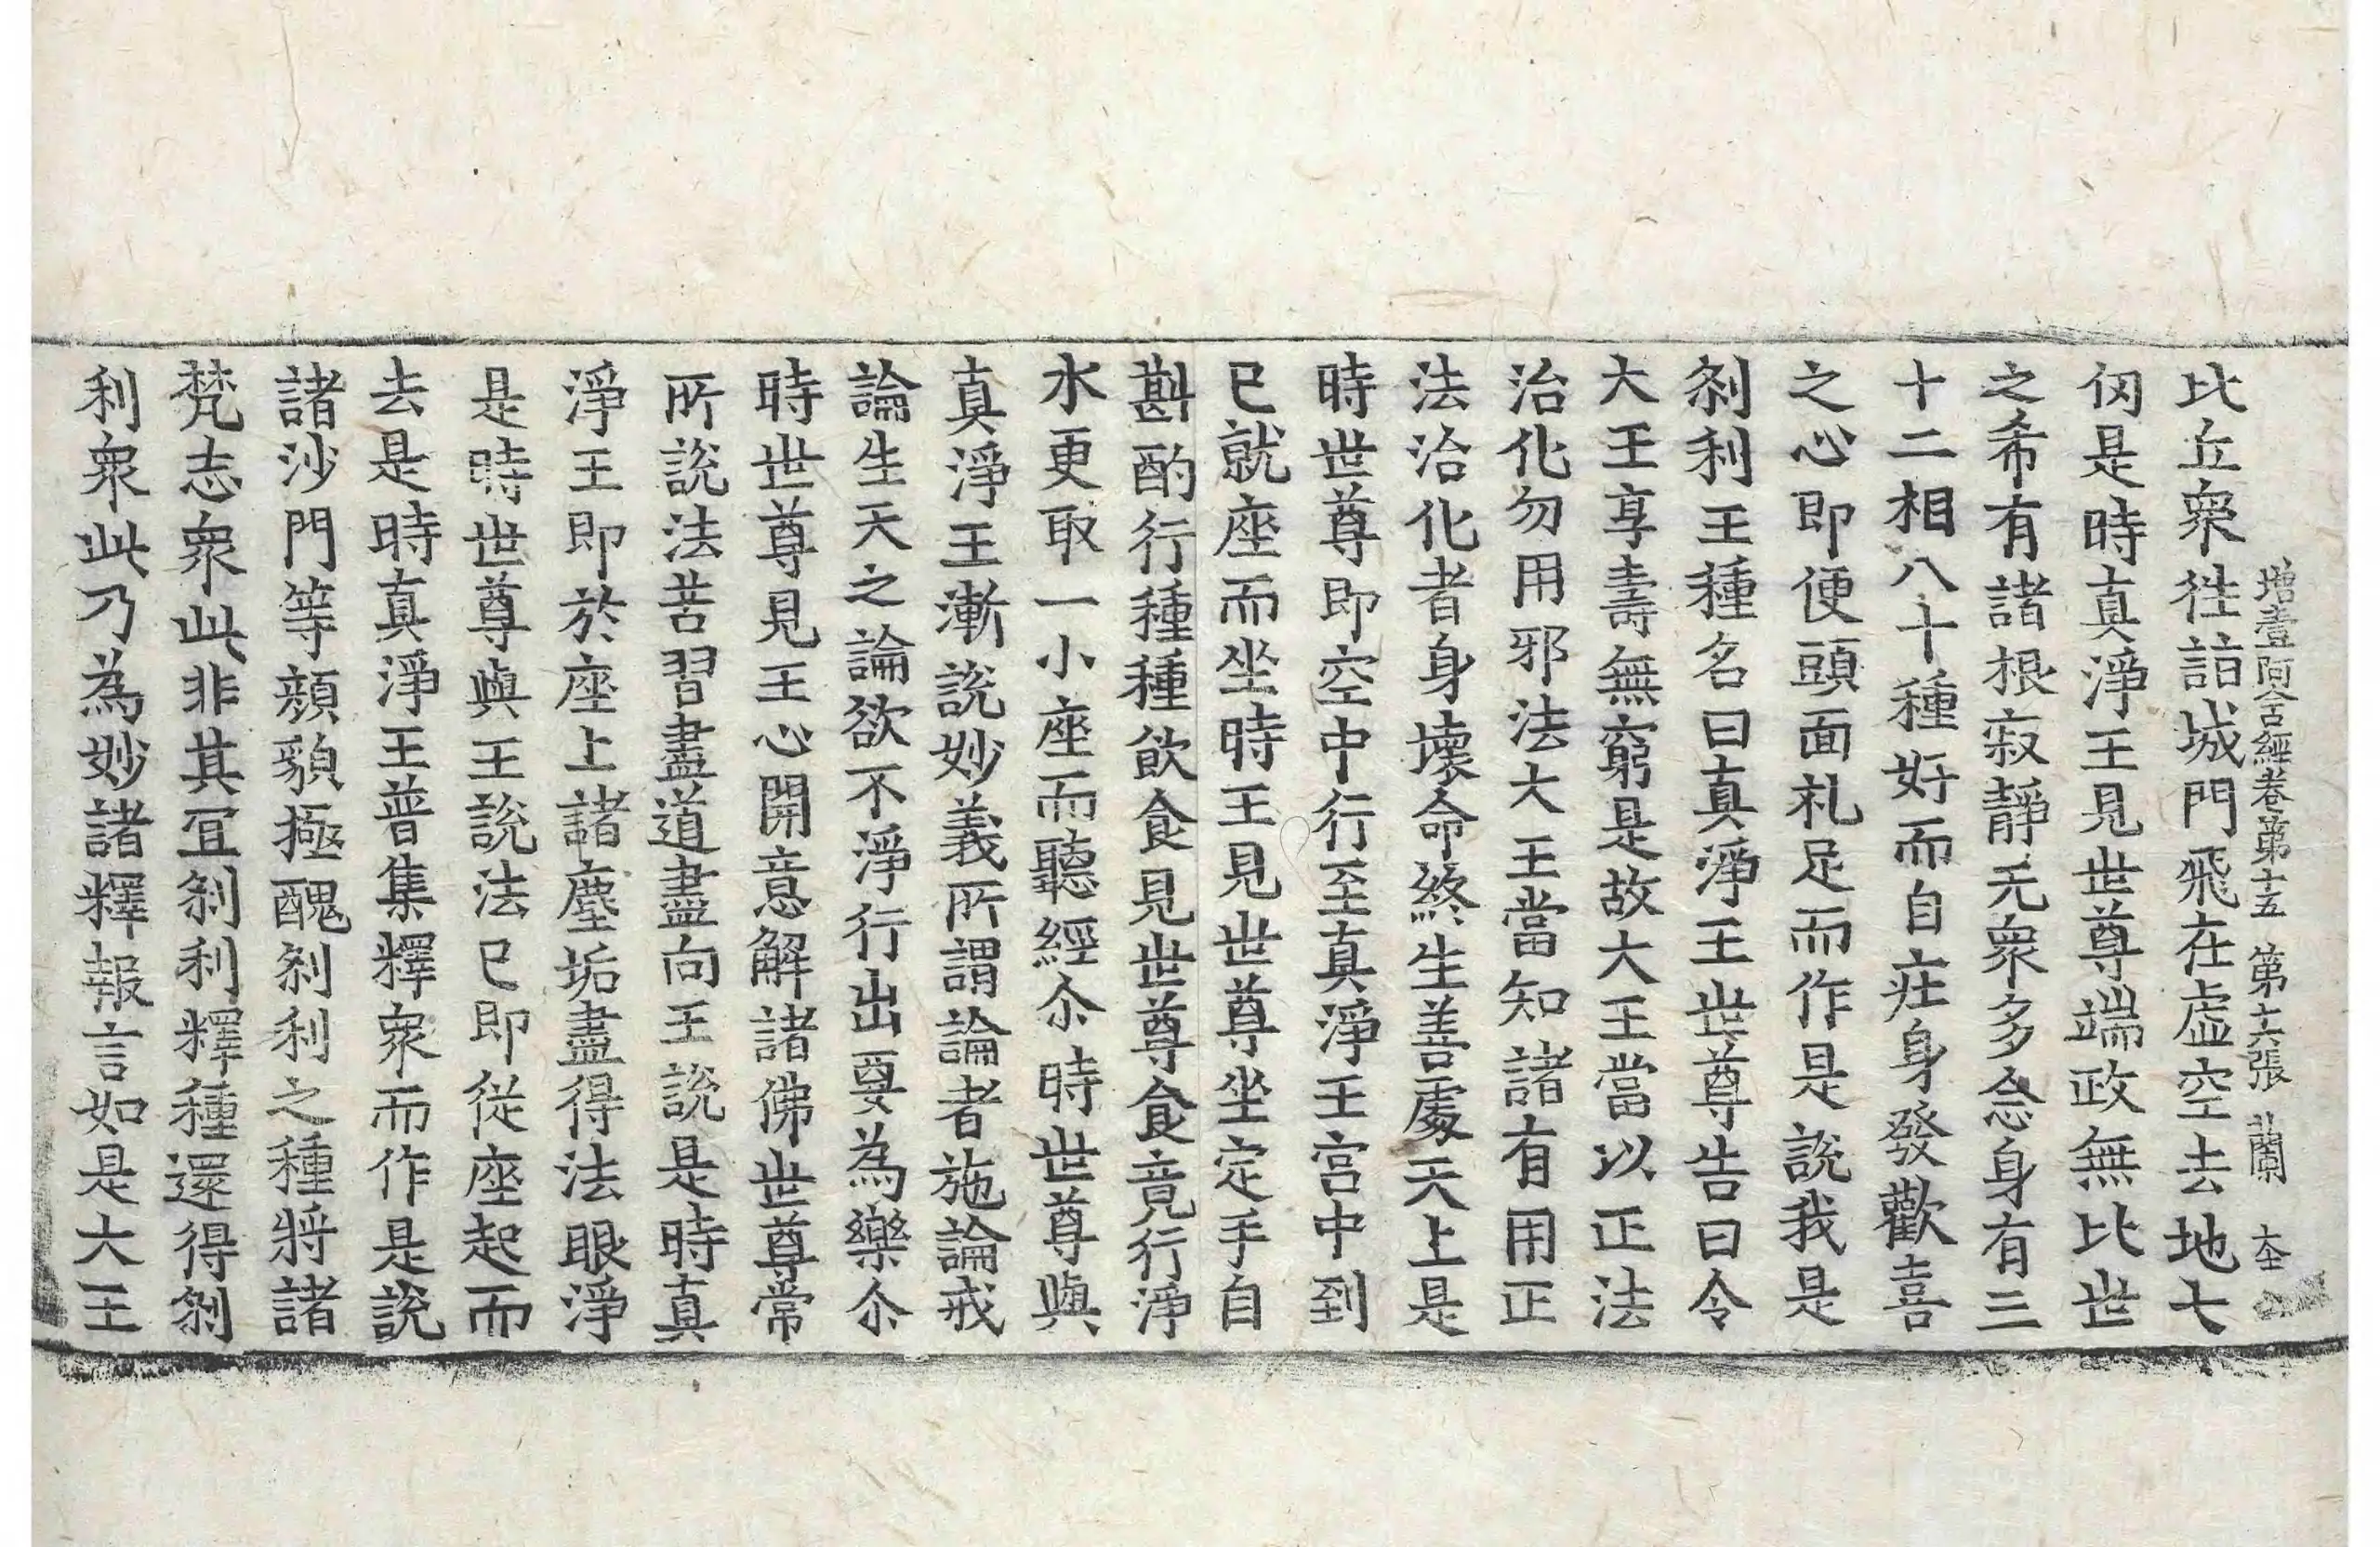 增壹阿含經卷第十五　第十六張　蘭
比丘衆往詣城門飛在虛空去地七
仞是時真淨王見世尊端政無比世
之希有諸根寂靜无衆多念身有三
十二相八十種好而自疘身發歡喜
之心即便頭面礼足而作是說我是
刹利王種名曰真淨王世尊告曰令
大王享壽無窮是故大王當以正法
治化勿用邪法大王當知諸有用正
法治化者身壞命終生善處天上是
時世尊即空中行至真淨王宮中到
已就座而坐時王見世尊坐定手自
斟酌行種種飲食見世尊食竟行淨
水更取一小座而聽經尒時世尊與
真淨王漸說妙義所謂論者施論戒
論生天之論欲不淨行出要為樂尒
時世尊見王心開意解諸佛世尊常
所說法苦習盡道盡向王說是時真
淨王即於座上諸塵垢盡得法眼淨
是時世尊與王說法已即從座起而
去是時真淨王普集釋衆而作是說
諸沙門等顏貌極醜刹利之種將諸
梵志衆此非其冝刹利釋種還得刹
利衆此乃為妙諸釋報言如是大王